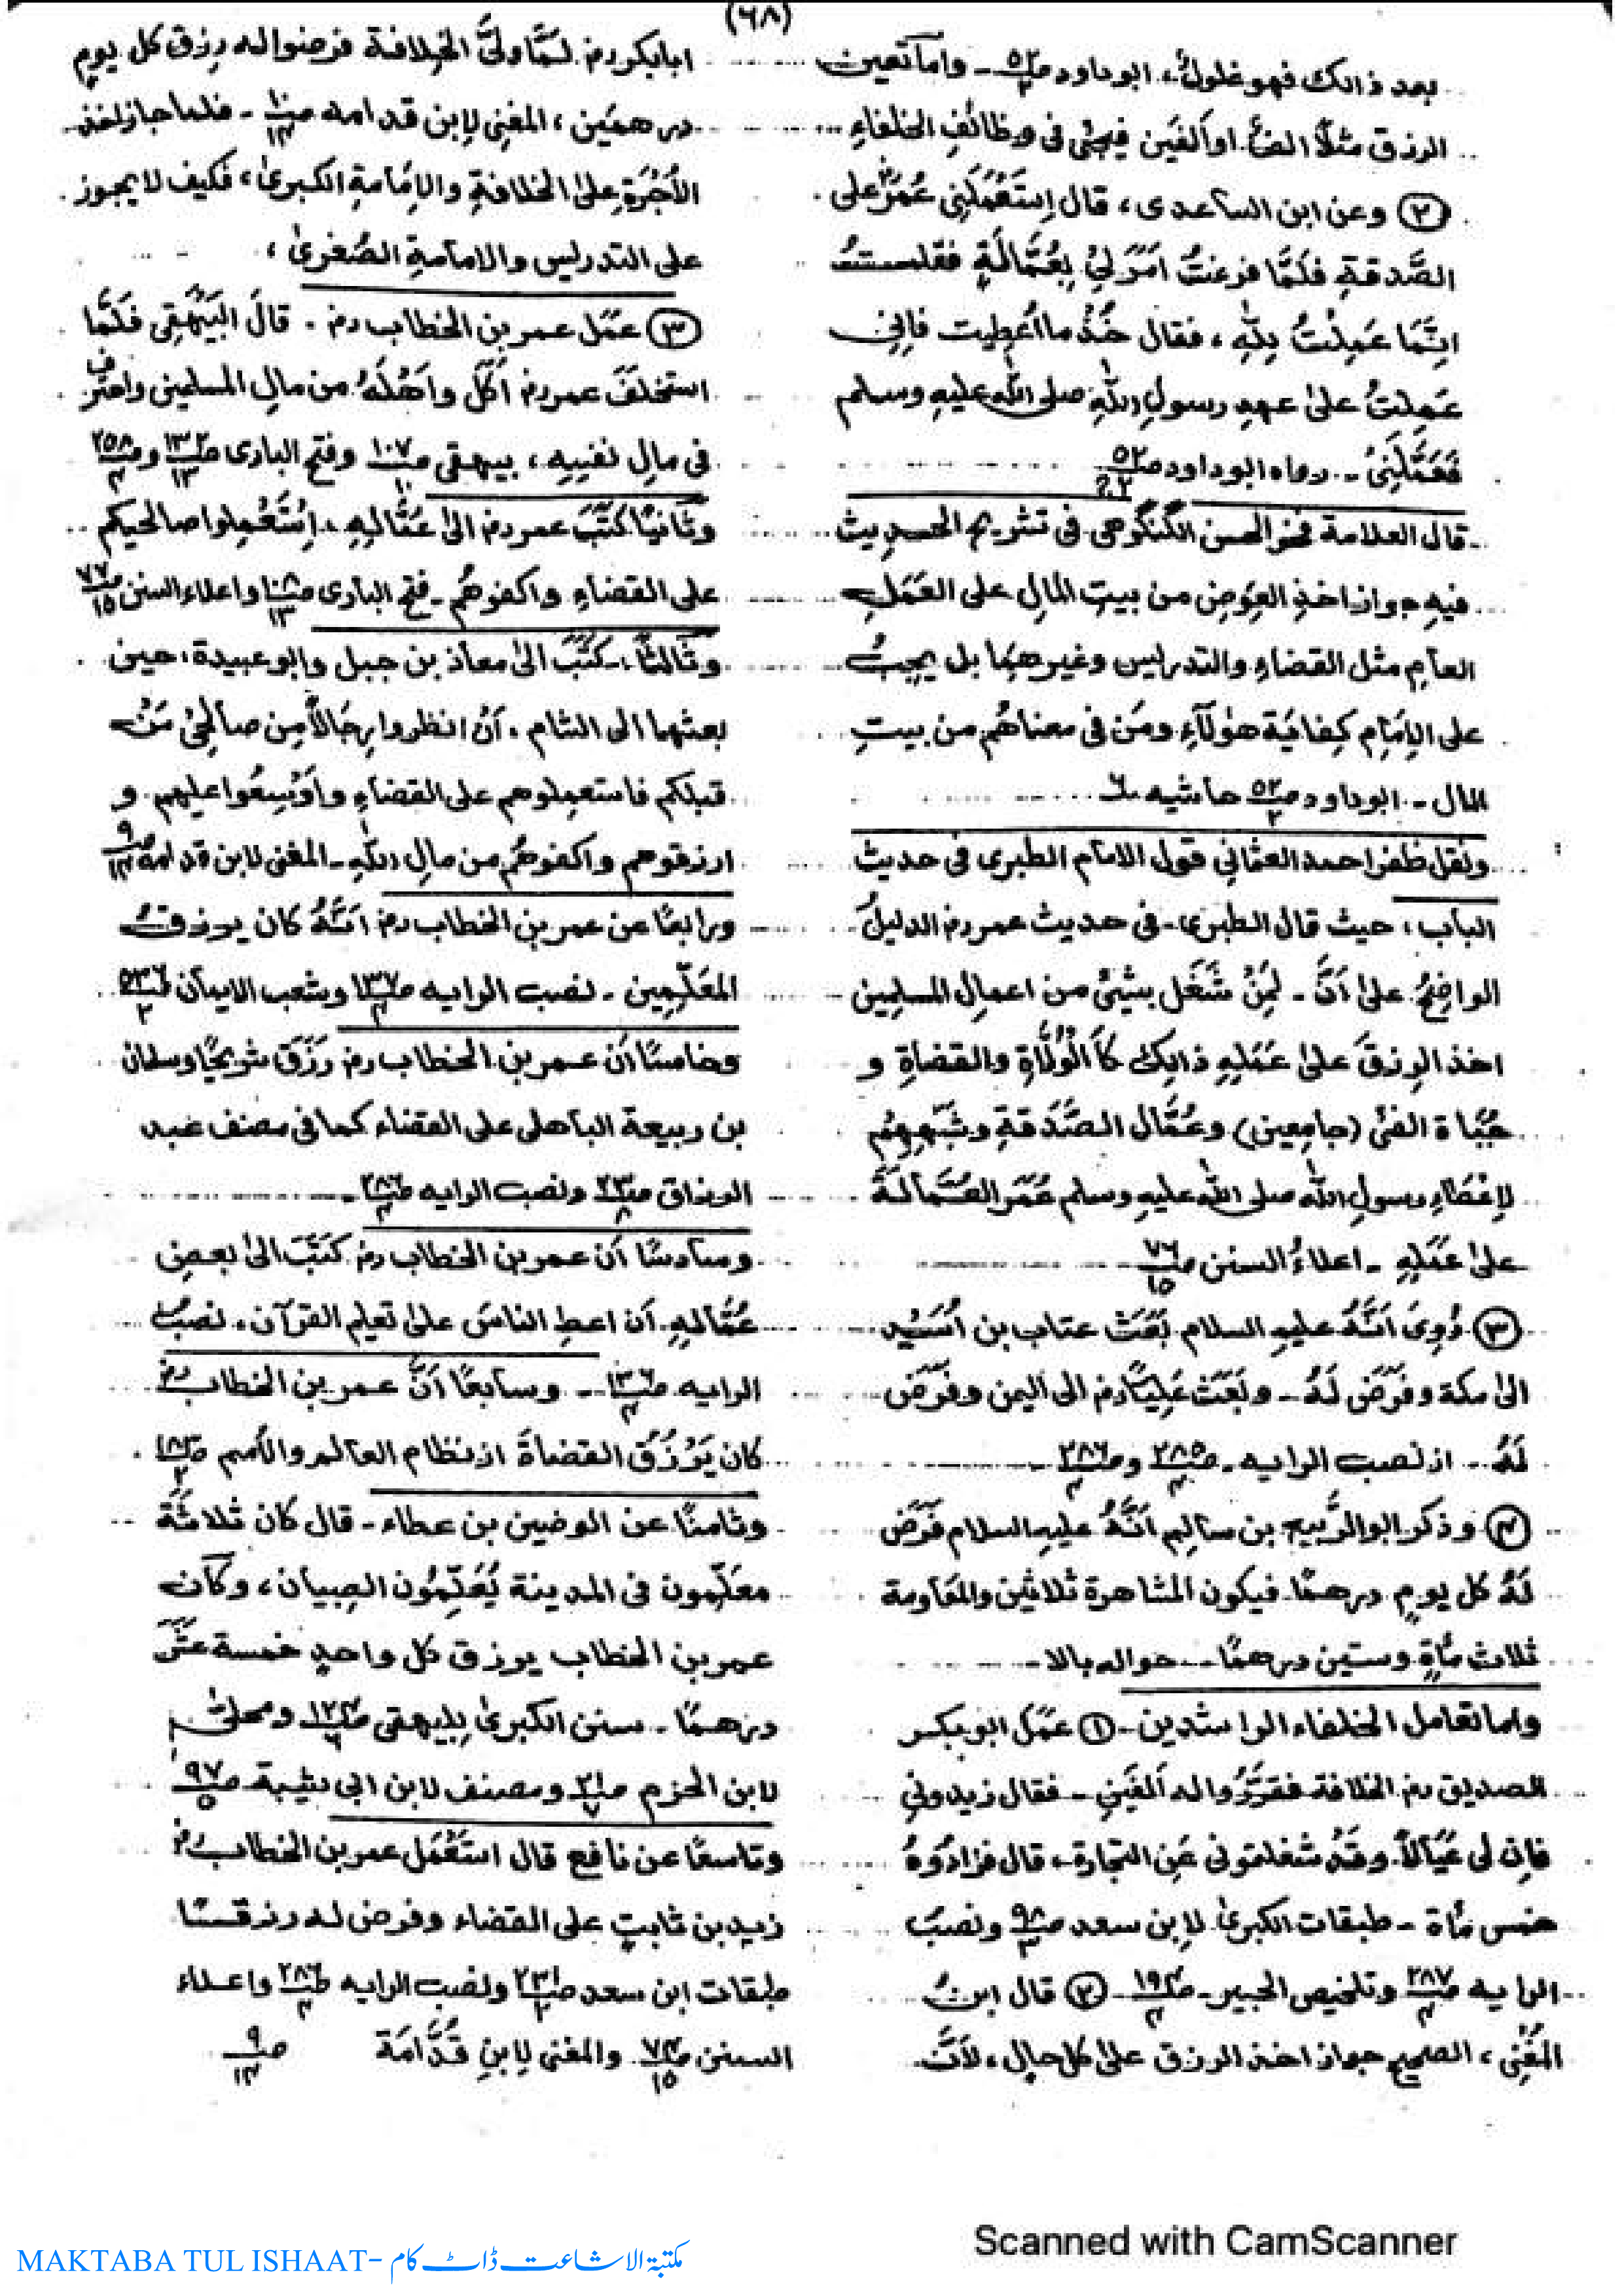 (٦٨)
بعد ذالك فهو غلول، ابوداود ص٥٢/٢ ـ واما تعين
الرزق مثلًا الف او الفين فيجئ فى وظائف الخلفاء
(٢) وعن ابن الساعدى، قال اِستَعْمَلَنِى عُمَرُ على
الصَّدقةِ فلَمَّا فرغتُ اَمَرَلِىْ بِعُمَّالَةٍ فقلستُ
اِنَّمَا عَمِلْتُ لِلّٰهِ، فقال خُذْ ما اُعْطِيت فاِنى
عَمِلتُ علىٰ عهدِ رسولِ اللّٰهِ صلى اللّٰه عليهِ وسلم
فَعَمَّلَنِىْ ـ رواه ابوداود ص٥٢/٢
قال العلامة فخر الحسن الگنگوهى فى تشريح الحديث
فيهِ جواز اخذِ العِوَضِ من بيتِ المالِ على العَمَلِ
العام مثل القضاءِ والتدريس وغيرهما بل يجبُ
على الاِمَامِ كِفايَة هؤلآءِ ومَن فى معناهُم من بيتِ
المال ـ ابوداود ص٥٢/٢ حاشيه ٦
ونقل ظفر احمد العثمانى قول الامام الطبرى فى حديث
الباب، حيث قال الطبرى ـ فى حديث عمر رض الدليلُ
الواضِحُ علىٰ اَنَّ ـ لِمَنْ شَغَل بشئ من اعمالِ المسلمِين
اخذ الرِزقَ علىٰ عَمَلِهِ ذالِكَ كَالْوُلَاةِ والقضاةِ و
جُبَاة الفئ (جامِعين) وعُمَّال الصَّدَقةِ وشَبهِهِم
لِاِعْطَاءِ رسولِ اللّٰه صلى اللّٰه عليهِ وسلم عُمَرَ العُمَالَةَ
علىٰ عَمَلِهِ ـ اعلاءُ السنن ص٧٦/١٥
(٣) رُوِىَ اَنَّهُ عليهِ السلام بَعَثَ عتاب بن اُسَيْد
الىٰ مكة وفَرَضَ لَهُ ـ وبَعَثَ عَلِيًّا رض الى اليمن وفَرَضَ
لَهُ ـ از نصب الرايه ـ ص٢٨٥/٤ وص٢٨٦/٤ ـ
(٤) وذكر ابو الرَّبيع بن سالِم اَنَّهُ عليهِ السلام فَرَضَ
لَهُ كل يومٍ درهمًا ـ فيكون المشاهرة ثلاثين والمقاومة
ثلاث مأةٍ وستين درهمًا ـ حواله بالا ـ
واما تعامل الخلفاء الراشدين ـ (١) عَمَل ابوبكر
الصديق رض الخلافة فقرَّرُوا له اَلفَينِ ـ فقال زيدونى
فاِن لى عَيَالاً وقَدْ شغلتمونى عَنِ التجارةِ ـ قال فزادُوهُ
خمس مأة ـ طبقات الكبرىٰ لِاِبن سعد ص٩٨/٣ ونصبُ
الرايه ص٢٨٧/٤ وتلخيص الحبير ـ ص١٩٤/٤ ـ (٢) قال ابن
المُغْنِى، الصحيح جواز اخذ الرزق علىٰ كل حالٍ، لاَنَّ
ابابكر رض لمَّا ولىَّ الخِلافة فرضوا له رِزق كل يومٍ
درهمَين، المغنى لِابن قدامه ص١٠/١٤ ـ فلما جاز اخذ
الاُجْرَةِ علىٰ الخلافةِ والاِمَامةِ الكبرىٰ، فكيف لا يجوز
على التدريس والامامةِ الصُغرىٰ،
(٣) عَمَل عمر بن الخطاب رض. قالَ البَيْهَقِى فَلَمَّا
استخلَفَ عمر رض اَكَلَ واَهْلُهُ من مالِ المسلمين واحترف
فى مالِ نفسِهِ، بيهقى ص١٠٧/١٠ وفتح البارى ص١٣٢/١٣ وص٢٥٨/٤
وثانيًا كَتَبَ عمر رض الىٰ عُمَّالِهِ، اِسْتَعْمِلوا صالحيكم
على القضاءِ واكفوهُم ـ فتح البارى ص/١٣ واعلاء السنن ص٧٧/١٥
وثالثًا، كَتَبَ الىٰ معاذ بن جبل وابوعبيدة، حين
بعثهما الى الشام، اَنْ انظروا رِجَالاً مِن صالِحِىْ مَنْ
قبلكم فاستعمِلوهم على القضاءِ واَوْسِعُوا عليهم و
ارزقوهم واكفوهُم من مالِ اللّٰهِ ـ المغنى لابن قدامة ص٩/١٤
ورابعًا عن عمر بن الخطاب رض اَنَّهُ كان يرزقُ
المعَلِّمِين ـ نصب الرايه ص١٣٧/٤ وشعب الايمان ص٥٣٦/٢
وخامسًا اَن عمر بن الخطاب رض رَزَقَ شريحًا وسلمان
بن ربيعة الباهلى على القضاء كما فى مصنف عبد
الرزاق ص٢٣/٨ ونصب الرايه ص٢٨٦/٤ ـ
وسادسًا اَن عمر بن الخطاب رض كَتَبَ الىٰ بعضِ
عُمَّالِهِ ـ اَن اعطِ الناسَ علىٰ تعليم القرآن، نصبُ
الرايه ص١٣٦/٤ ـ وسابعًا اَنَّ عمر بن الخطاب رض
كان يَرْزُقُ القضاةَ از نظام العالم والاُمم ص١٨٣/٢
وثامنًا عن الوضين بن عطاء ـ قال كان ثلاثةُ
معلِّمون فى المدينة يُعَلِّمُون الصِبيان، وكَان
عمر بن الخطاب يرزق كل واحدٍ خمسة عشَرَ
درهمًا ـ سنن الكبرىٰ لِلبيهقى ص١٢٤/٦ ومحلىٰ
لابن الحزم ص/٧ ومصنف لابن ابى شيبة ص٩٧/٥
وتاسعًا عن نافع قال استَعْمَل عمر بن الخطاب رض
زيد بن ثابتٍ على القضاء وفرض له رزقًا
طبقات ابن سعد ص٢٣١/٢ ونصب الرايه ص٢٨٦/٤ واعلاء
السنن ص٧٤/١٥ والمغنى لِابنِ قُدَّامَة ص٩/١٤
Scanned with CamScanner
MAKTABA TUL ISHAAT- مكتبة الاشاعت ڈاٹ كام